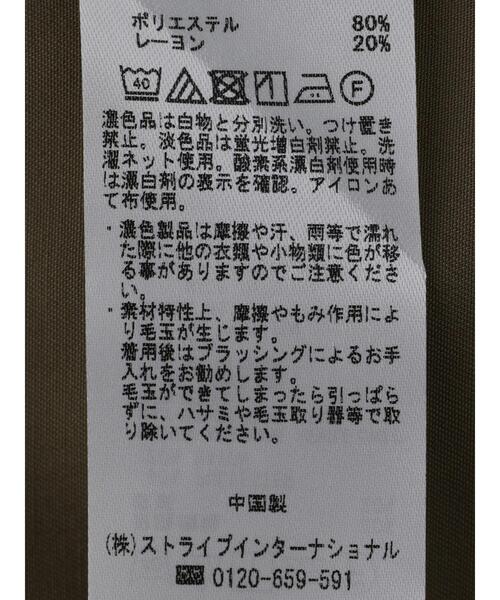 ポリエステル 80%
レーヨン 20%
40 F
濃色品は白物と分別洗い。つけ置き
禁止。淡色品は蛍光増白剤禁止。洗
濯ネット使用。酸素系漂白剤使用時
は漂白剤の表示を確認。アイロンあ
て布使用。
・濃色製品は摩擦や汗、雨等で濡れ
た際に他の衣類や小物類に色が移
る事がありますのでご注意くださ
い。
・素材特性上、摩擦やもみ作用によ
り毛玉が生じます。
着用後はブラッシングによるお手
入れをお勧めします。
毛玉ができてしまったら引っぱら
ずに、ハサミや毛玉取り器等で取
り除いてください。
中国製
(株)ストライプインターナショナル
0120-659-591